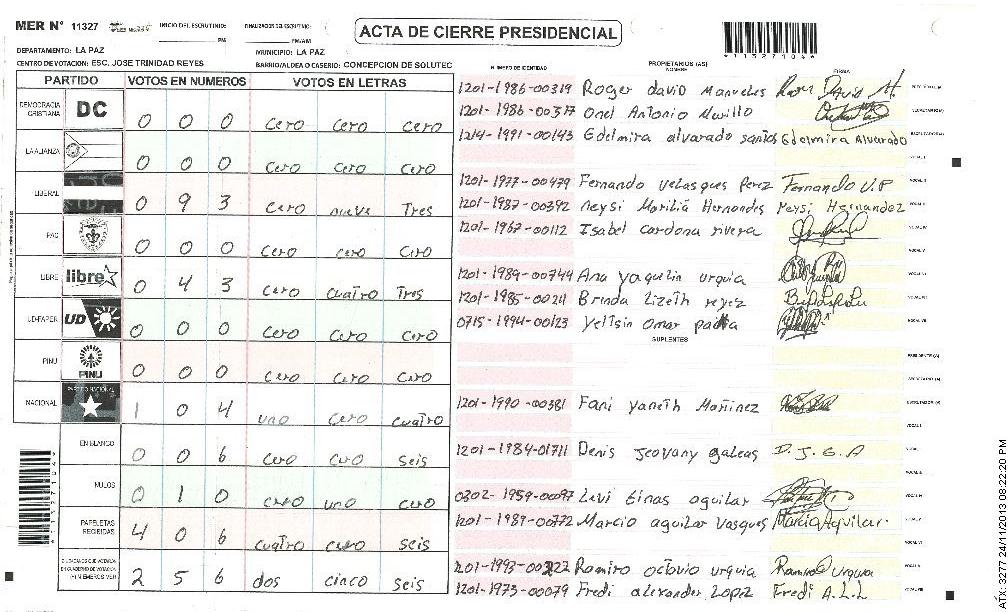 MER N° 11327 INICIO DEL ESCRUTINIO: FINALIZACION DEL ESCRUTINIO:
PM PM/AM
ACTA DE CIERRE PRESIDENCIAL
*1132710 4*
DEPARTAMENTO: LA PAZ MUNICIPIO: LA PAZ
CENTRO DE VOTACION: ESC. JOSE TRINIDAD REYES BARRIO/ALDEA O CASERIO: CONCEPCION DE SOLUTEC
PARTIDO VOTOS EN NUMEROS VOTOS EN LETRAS
DEMOCRACIA CRISTIANA DC 0 0 0 cero cero cero
LA ALIANZA 0 0 0 cero cero cero
LIBERAL 0 9 3 cero nueve Tres
PAC 0 0 0 cero cero cero
LIBRE libre 0 4 3 cero cuatro Tres
UD-FAPER UD 0 0 0 cero cero cero
PINU PINU 0 0 0 cero cero cero
NACIONAL PARTIDO NACIONAL 1 0 4 uno cero cuatro
EN BLANCO 0 0 6 cero cero seis
NULOS 0 1 0 cero uno cero
PAPELETAS RECIBIDAS 4 0 6 cuatro cero seis
CIUDADANOS QUE VOTARON EN CUADERNO DE VOTACION 2 5 6 dos cinco seis
NUMERO DE IDENTIDAD PROPIETARIOS (AS) NOMBRE FIRMA
1201-1986-00319 Roger david Manueles
1201-1986-00317 Onel Antonio Murillo
1214-1991-00143 Edelmira alvarado santos Edelmira Alvarado
1201-1977-00479 Fernando Velasques Perez Fernando V.P
1201-1987-00392 Neysi Marilia Hernandes Neysi Hernandez
1201-1967-00112 Isabel cardona rivera
1201-1989-00744 Ana yaquelin urquia
1201-1985-00211 Brinda Lizeth reyez
0715-1994-00123 yeltsin omar
SUPLENTES
1201-1990-00381 Fani yaneth Martinez
1201-1984-01711 Denis Jeovany galeas D.J.G.A
0302-1959-00097 Levi Ginas aguilar
1201-1989-00772 Marcio aguilar Vasques Marcio Aguilar
1201-1993-00222 Ramiro octavio urquia Ramiro urquia
1201-1973-00079 Fredi alexander Lopez Fredi A.L.L
3277 24/11/2013 08:22:20 PM